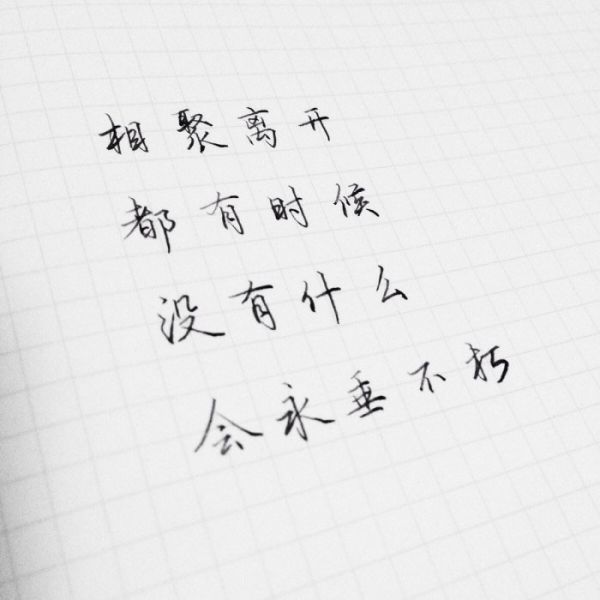 相聚离开
都有时候
没有什么
会永垂不朽